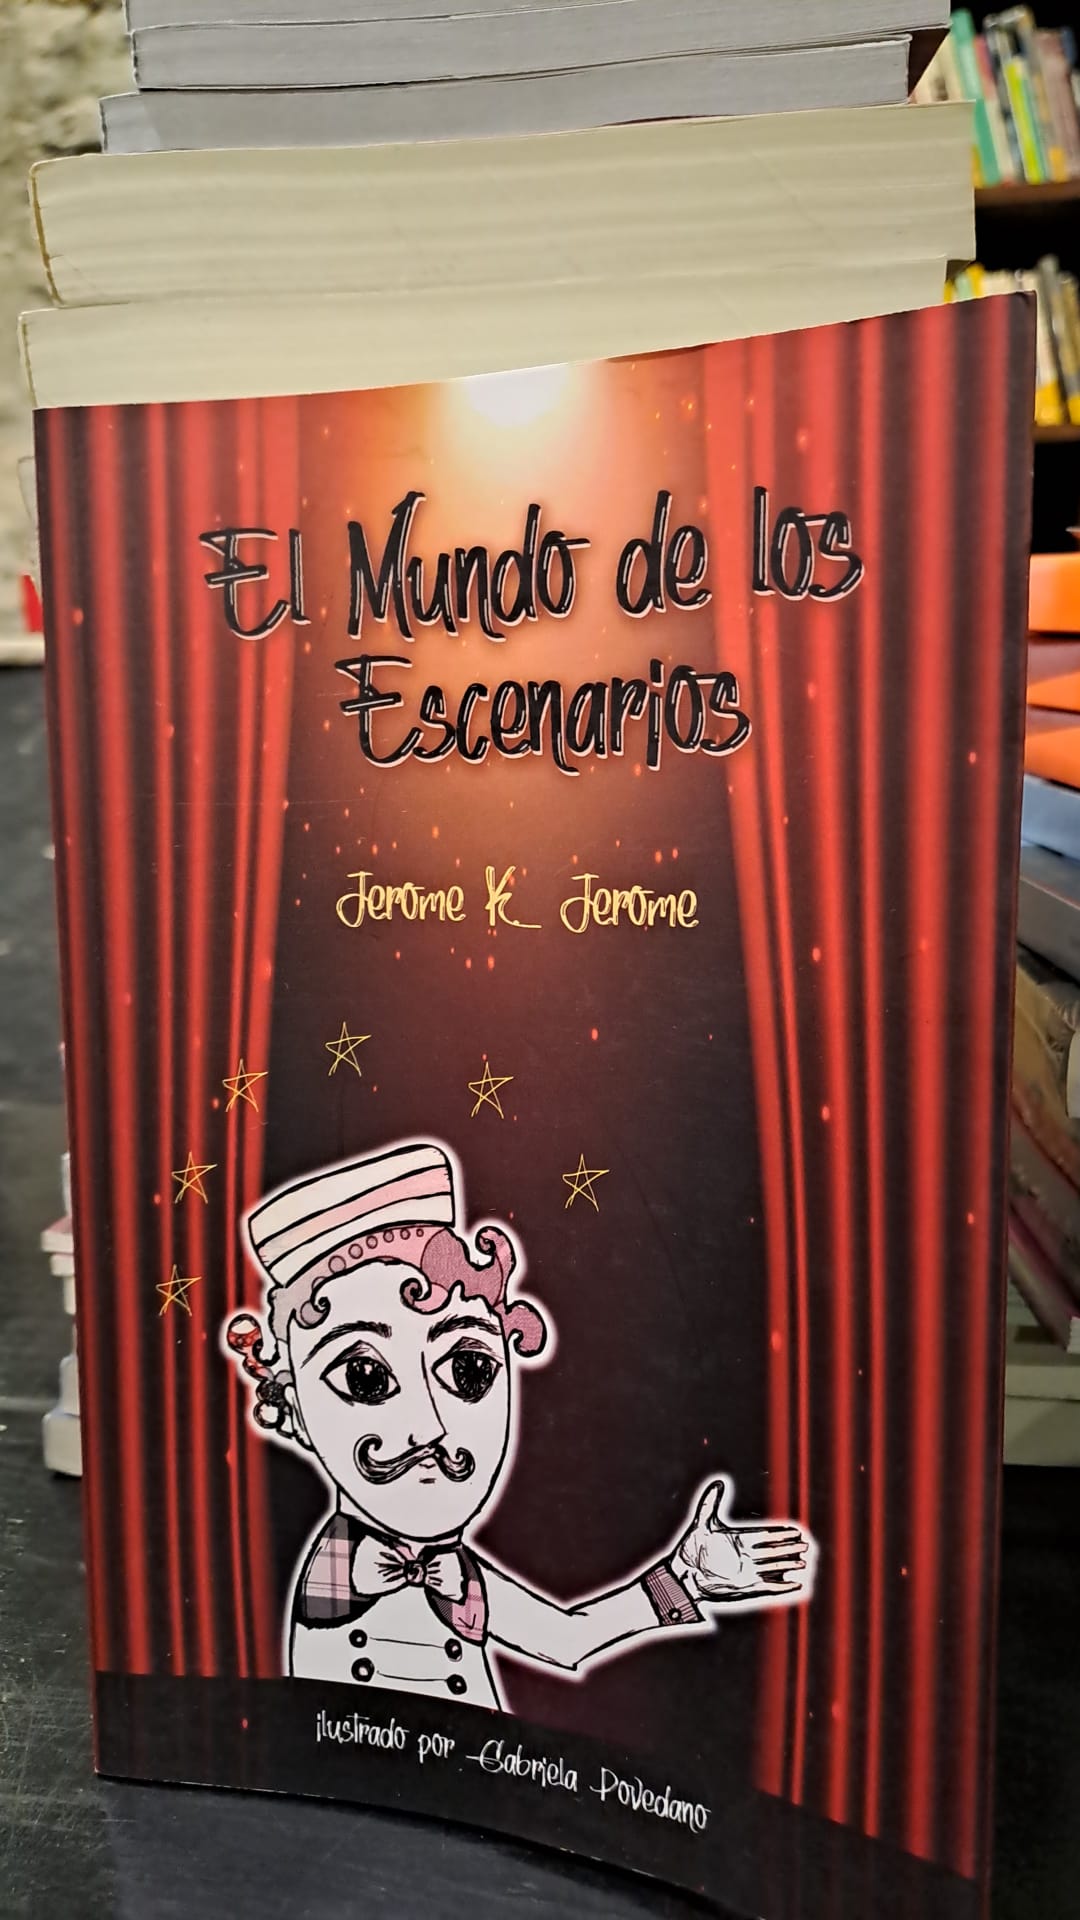 El Mundo de los
Escenarios
Jerome K. Jerome
ilustrado por Gabriela Povedano